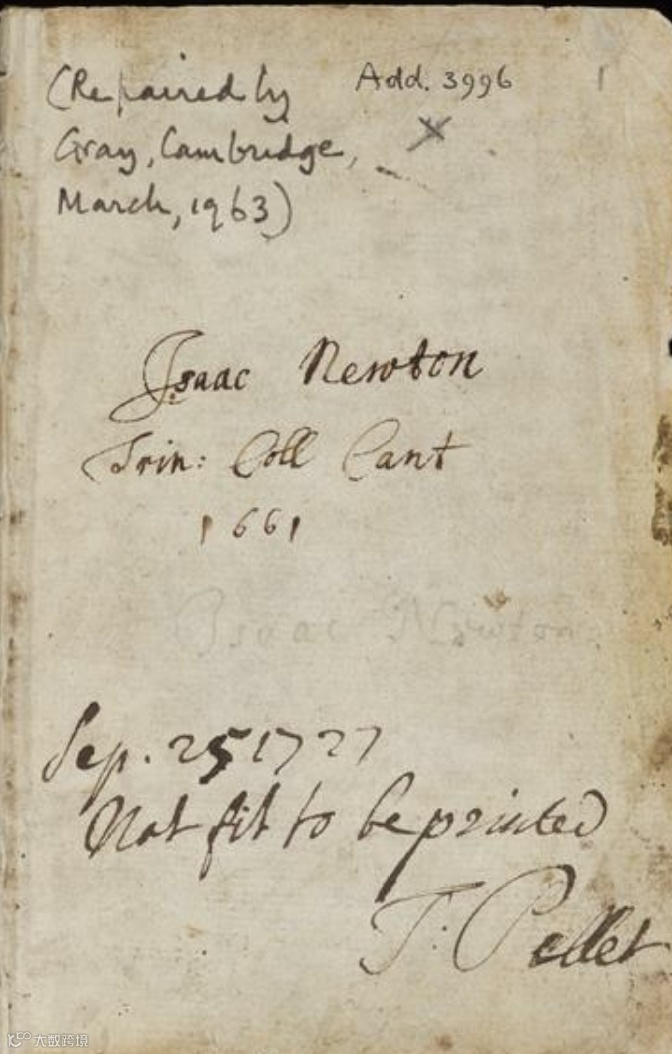 (Repaired by
Add. 3996
1
Gray, Cambridge,
March, 1963)
Isaac Newton
Trin: Coll Cant
1661
Isaac Newton
Sep. 25 1727
Not fit to be printed
T: Pellet
大数跨境